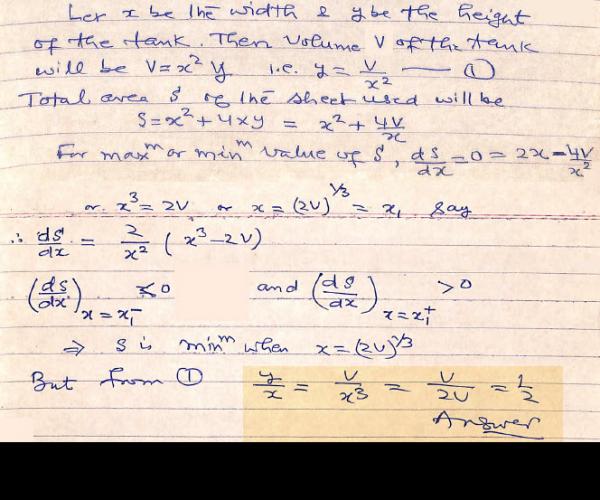 Let x be the width & y be the height
of the tank. Then volume V of the tank
will be V = x² y i.e. y = V/x² —— ①
Total area S of the sheet used will be
S = x² + 4xy = x² + 4V/x
For maxᵐ or minᵐ value of S, dS/dx = 0 = 2x - 4V/x²
or x³ = 2V or x = (2V)^1/3 = x₁ say
∴ dS/dx = 2/x² (x³ - 2V)
(dS/dx) x = x₁⁻ < 0 and (dS/dx) x = x₁⁺ > 0
⇒ S is minᵐ when x = (2V)^1/3
But from ① y/x = V/x³ = V/2V = 1/2
Answer